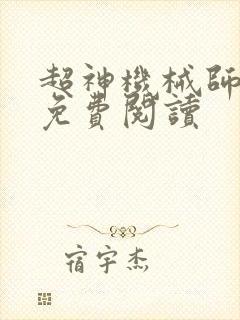 超神機械師
免費閱讀
宿宇杰